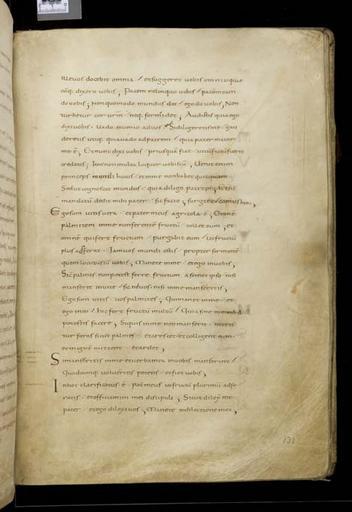 Ille vos docebit omnia / et suggeret vobis omnia que
cūq; dixero vobis ; Pacem relinquo vobis / pacem meam
do vobis ; Non quomodo mundus dat / ego do vobis ; Non
turbetur cor vrm neq; formidet ; Audistis quia ego
dixi vobis . Vado
me ē ; Et nunc dixi vobis priusquā fiat
credatis ; Iam non multa loquar vobiscū ; Venit enim
princeps mundi huius / et in me non habet quicquam
Sed ut cognoscat mundus / quia diligo patrem / et sicut
mandatū dedit mihi pater sic facio , surgite eamus hinc ,
Ego sum vitis vera / et pater meus agricola ē ; Omnē
palmitem in me non ferentē fructū tollet eum / et
omnē qui fert fructum purgabit eum
plus afferat . Iam vos mundi estis propter sermonē
quem locutus sū vobis , Manete in me / et ego in vobis ,
Sic palmes non potest ferre fructum a semet ipso nisi
manserit in vite / sic nec vos nisi in me manseritis ,
Ego sum vitis vos palmites , Qui manet in me et
ego in eo / hic fert fructū multū / quia sine me nihil
potestis facere , Siquis in me non manserit
tur foras sicut palmes et arescet et colligent eum
et in ignē mittent et ardet ,
Si manseritis in me et verba mea in vobis manserint /
Quodcumq; volueritis petetis et fiet vobis ,
In hoc clarificatus ē pat meus ut fructū plurimū affe
ratis et efficiamini mei discipuli , Sicut dilexit me
pater et ego dilexi vos , Manete in dilectione mea ,
131